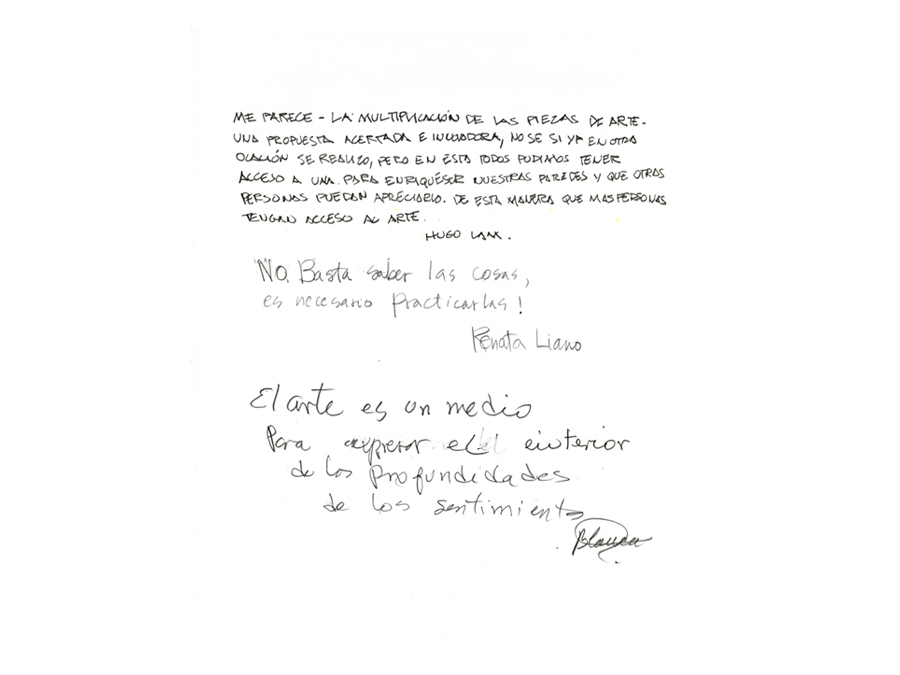 ME PARECE - LA MULTIPLICACIÓN DE LAS PIEZAS DE ARTE -
UNA PROPUESTA ACERTADA E INCLUIDORA, NO SE SI YA EN OTRA
OCACIÓN SE REALIZO, PERO EN ESTA TODOS PUDIMOS TENER
ACCESO A UNA PARA ENRIQUESER NUESTRAS PAREDES Y QUE OTRAS
PERSONAS PUEDAN APRECIARLO. DE ESTA MANERA QUE MAS PERSONAS
TENGAN ACCESO AL ARTE.
HUGO
No. Basta saber las cosas,
es necesario Practicarlas!
Renata Liano
El arte es un medio
Para expresar el interior
de los profundidades
de los sentimiento
Blanca